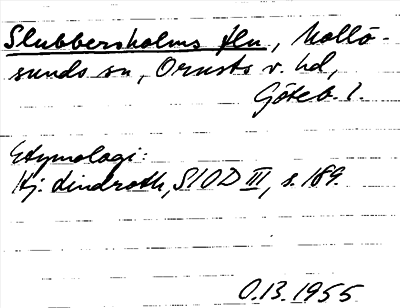 Slubbersholms fln, Mollö-
sunds sn, Orusts v. hd,
Göteb. l.
Etymologi:
Hj. Lindroth, SIOD III, s. 189.
O.B. 1955